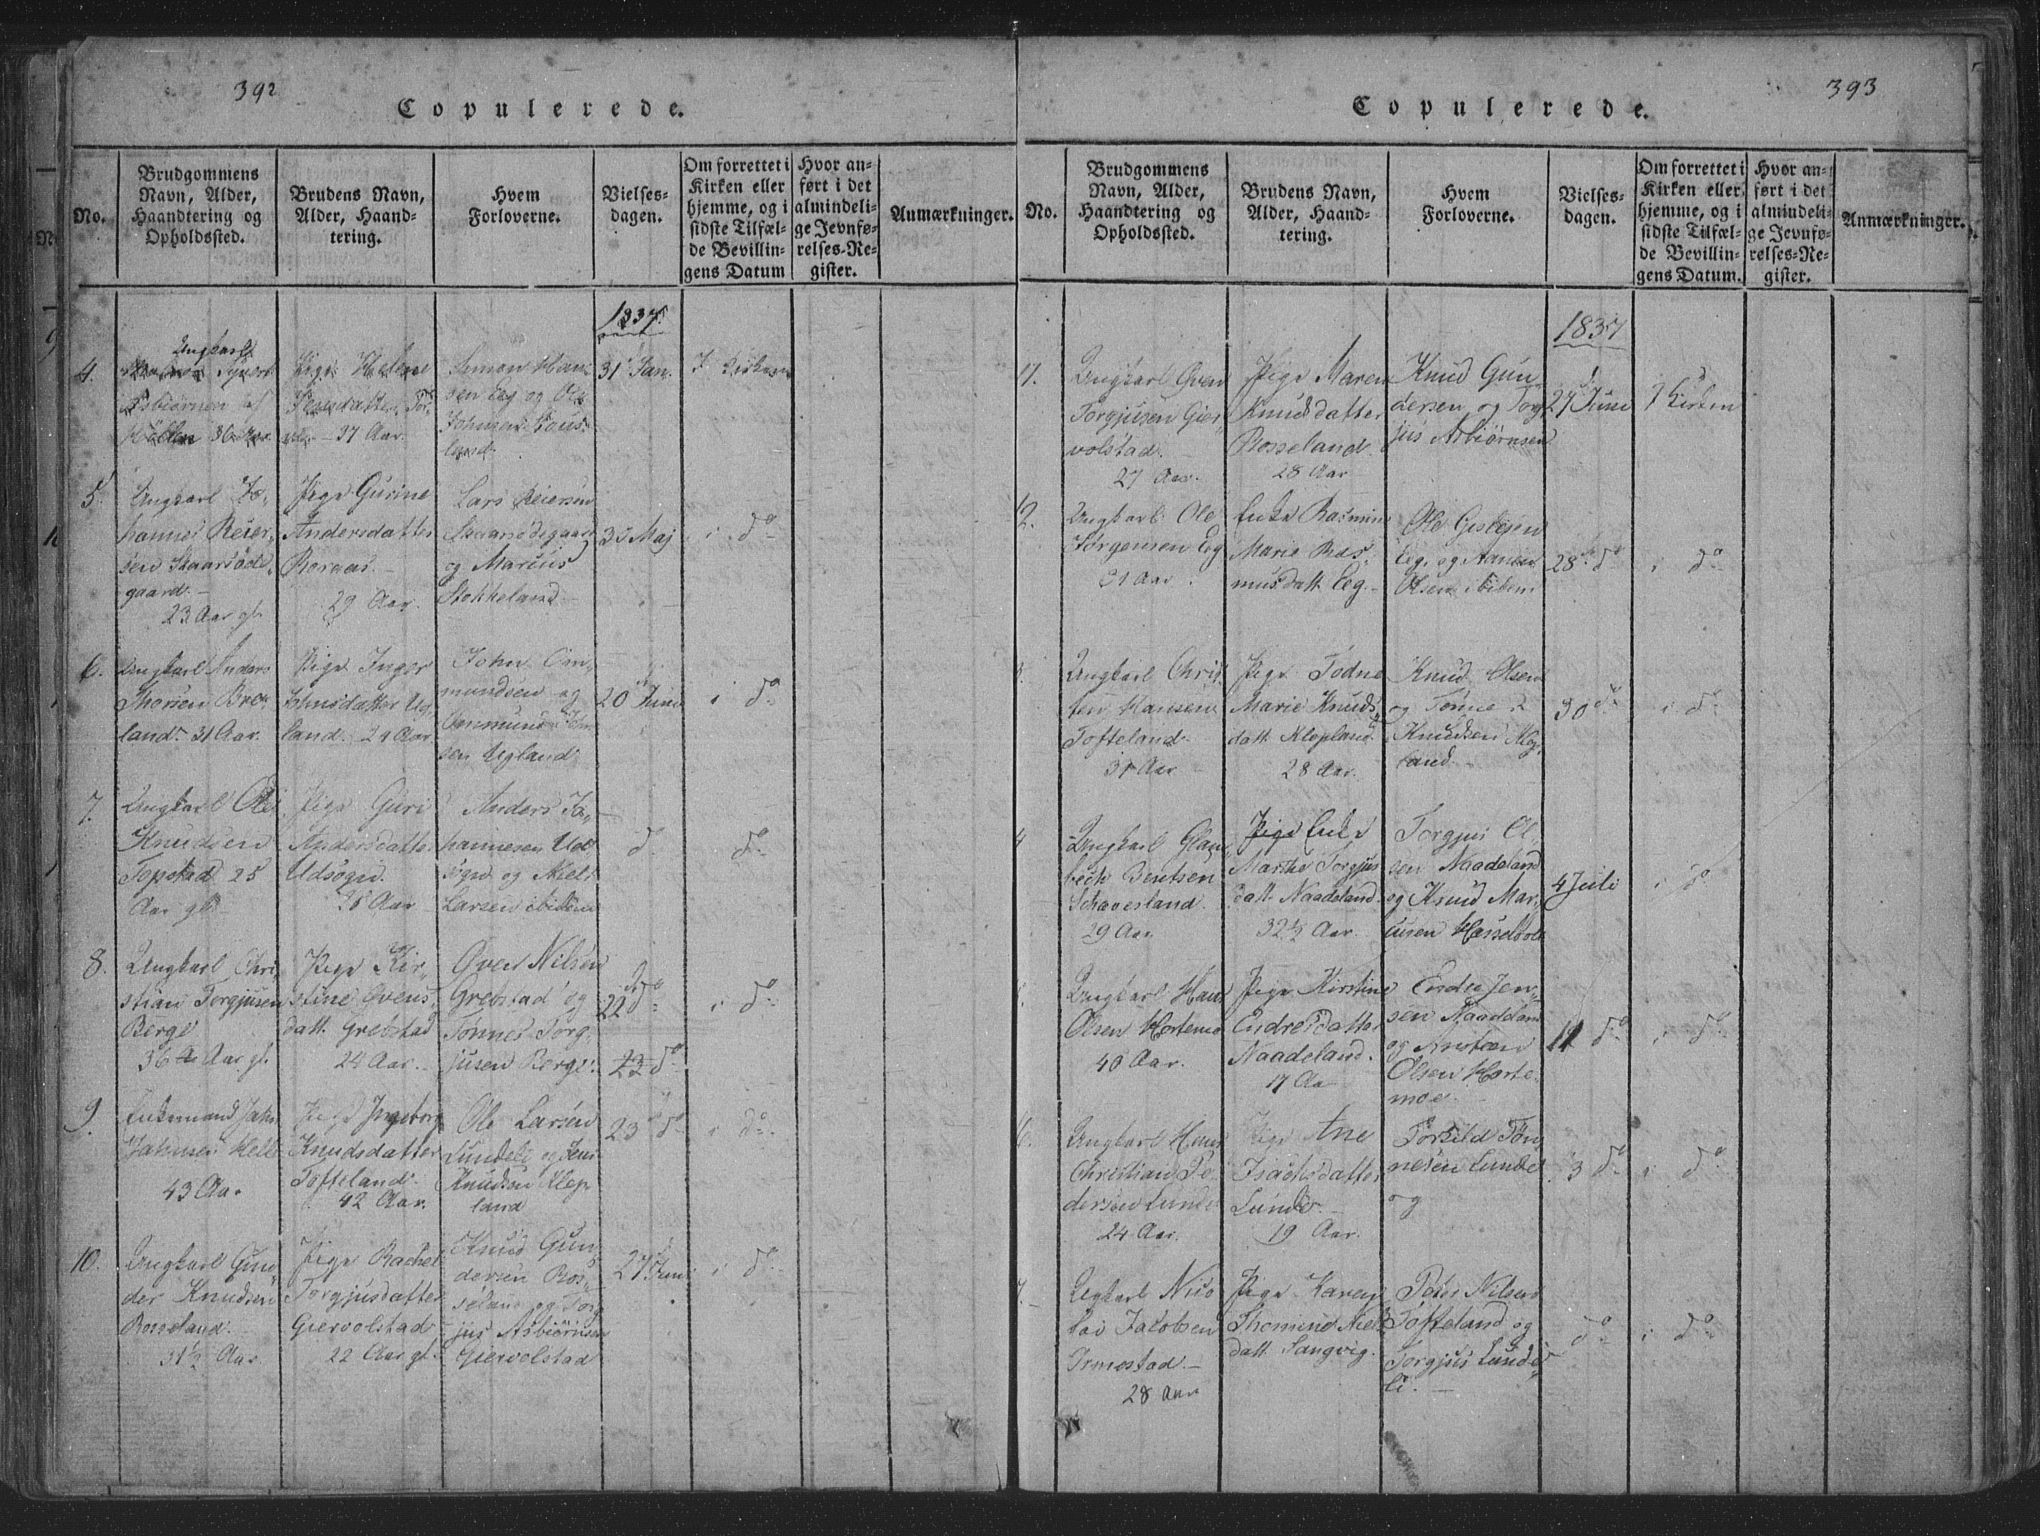 392
Copulerede.
No.
Brudgommens
Navn, Alder,
Haandtering og
Opholdssted.
Brudens Navn,
Alder, Haand-
tering.
Hvem
Forloverne.
Vielses-
dagen.
Om forrettet i
Kirken eller
hjemme, og i
sidste Tilfæl-
de Bevillin-
gens Datum
Hvor an-
ført i det
almindeli-
ge Jevnfø-
relses-Re-
gister.
Anmærkninger.
1837.
4.
Ungkarl
Asbiörnen
36 Aar
Pige Helene
37 Aar.
Simon Han-
sen Eeg og Ole
31 Jan.
I Kirken
5.
Ungkarl Jo-
hannes Reier-
sen Skaarsöde-
gaard.
23 Aar gl.
Pige Gurine
Andersdatter
Roraas.
29 Aar.
Lars Reiersen
Skaarsödegaard
og Marcus
Stokkeland
Maj
i do
6.
Ungkarl Anders
Thorsen Bre-
land. 31 Aar.
Pige Inger
Johnsdatter Ug-
land. 24 Aar.
John Om-
mundsen og
Ommund John-
sen Ugland
20 Juni
i do
7.
Ungkarl Ole
Knudsen
Topstad 25
Aar gl.
Pige Guri
Andersdatter
Udsögn.
Aar
Anders Jo-
hannesen Ud-
sögn og Niels
Larsen ibidem
do
do
8.
Ungkarl Chri-
stian Torgjusen
Berge
36 Aar gl.
Pige Kir-
stine Ovens-
datt. Grebstad
24 Aar.
Oven Nilsen
Grebstad og
Tonnes Torg-
jusen Berge.
22 do
23 do
i do
9.
Enkemand Jahn
Jahnsen Helle
43 Aar
Pige Ingeborg
Knudsdatter
Tofteland.
42 Aar.
Ole Larsen
Lundeli og Jens
Knudsen Klep-
land
23 do
i do
10.
Ungkarl Gun-
der Knudsen
Rosseland.
31½ Aar.
Pige Rachel
Torgjusdatter
Giervolstad
22 Aar gl.
Knud Gun-
dersen Ros-
seland og Torg-
jus Asbiörnsen
Giervolstad
27 Juni
i do
393
Copulerede.
No.
Brudgommens
Navn, Alder,
Haandtering og
Opholdssted.
Brudens Navn,
Alder, Haand-
tering.
Hvem
Forloverne.
Vielses-
dagen.
Om forrettet i
Kirken eller
hjemme, og i
sidste Tilfæl-
de Bevillin-
gens Datum.
Hvor an-
ført i det
almindeli-
ge Jevnfø-
relses-Re-
gister.
Anmærkninger.
1837
11.
Ungkarl Oven
Torgjusen Gier-
volstad.
27 Aar.
Pige Maren
Knudsdatter
Rosseland.
28 Aar
Knud Gun-
dersen og Torg-
jus Asbiörnsen
27 Juni
I Kirken
12.
Ungkarl Ole
Jörgensen Eeg
Aar.
Enke Rasmine
Marie Ras-
musdatt. Eeg.
Ole Gislesen
Eeg, og Aanen
Olsen ibidem
28 do
i do
Ungkarl Chris-
ten Hansen
Tofteland.
31 Aar
Pige Todne
Marie Knuds-
datt. Klepland.
28 Aar.
Knud Olsen
og Tonne
Knudsen Klep-
land.
30 do
i do
4
Ungkarl Glam-
bech Bentsen
Schaverland.
29 Aar
Pige Enke
Marthe Torgjus-
datt. Naadeland.
32½ Aar.
Torgjus Ol-
sen Naadeland
og Knud Mar-
cusen Hasselvold
4 Juli
i do
Ungkarl Hans
Olsen Hortemo
40 Aar.
Pige Kirstine
Endresdatter
Naadeland.
17 Aa
Endre Jen-
sen Naadeland
og Aanen
Olsen Horte-
moe.
11 do
i do
6.
Ungkarl Hans
Christian Pe-
dersen Lunde
24 Aar.
Pige Ane
Isachsdatter
Lunde.
19 Aar.
Torkild Tön-
nesen Lunde
og
3 do
i do
7
Ungkarl Nico-
lai Jacobsen
Irmestad.
28 Aar
Pige Karen
Thomine Niels-
datt. Langvig.
Peter Nilsen
Tofteland og
Torgjus Lunde-
li.
do
i do